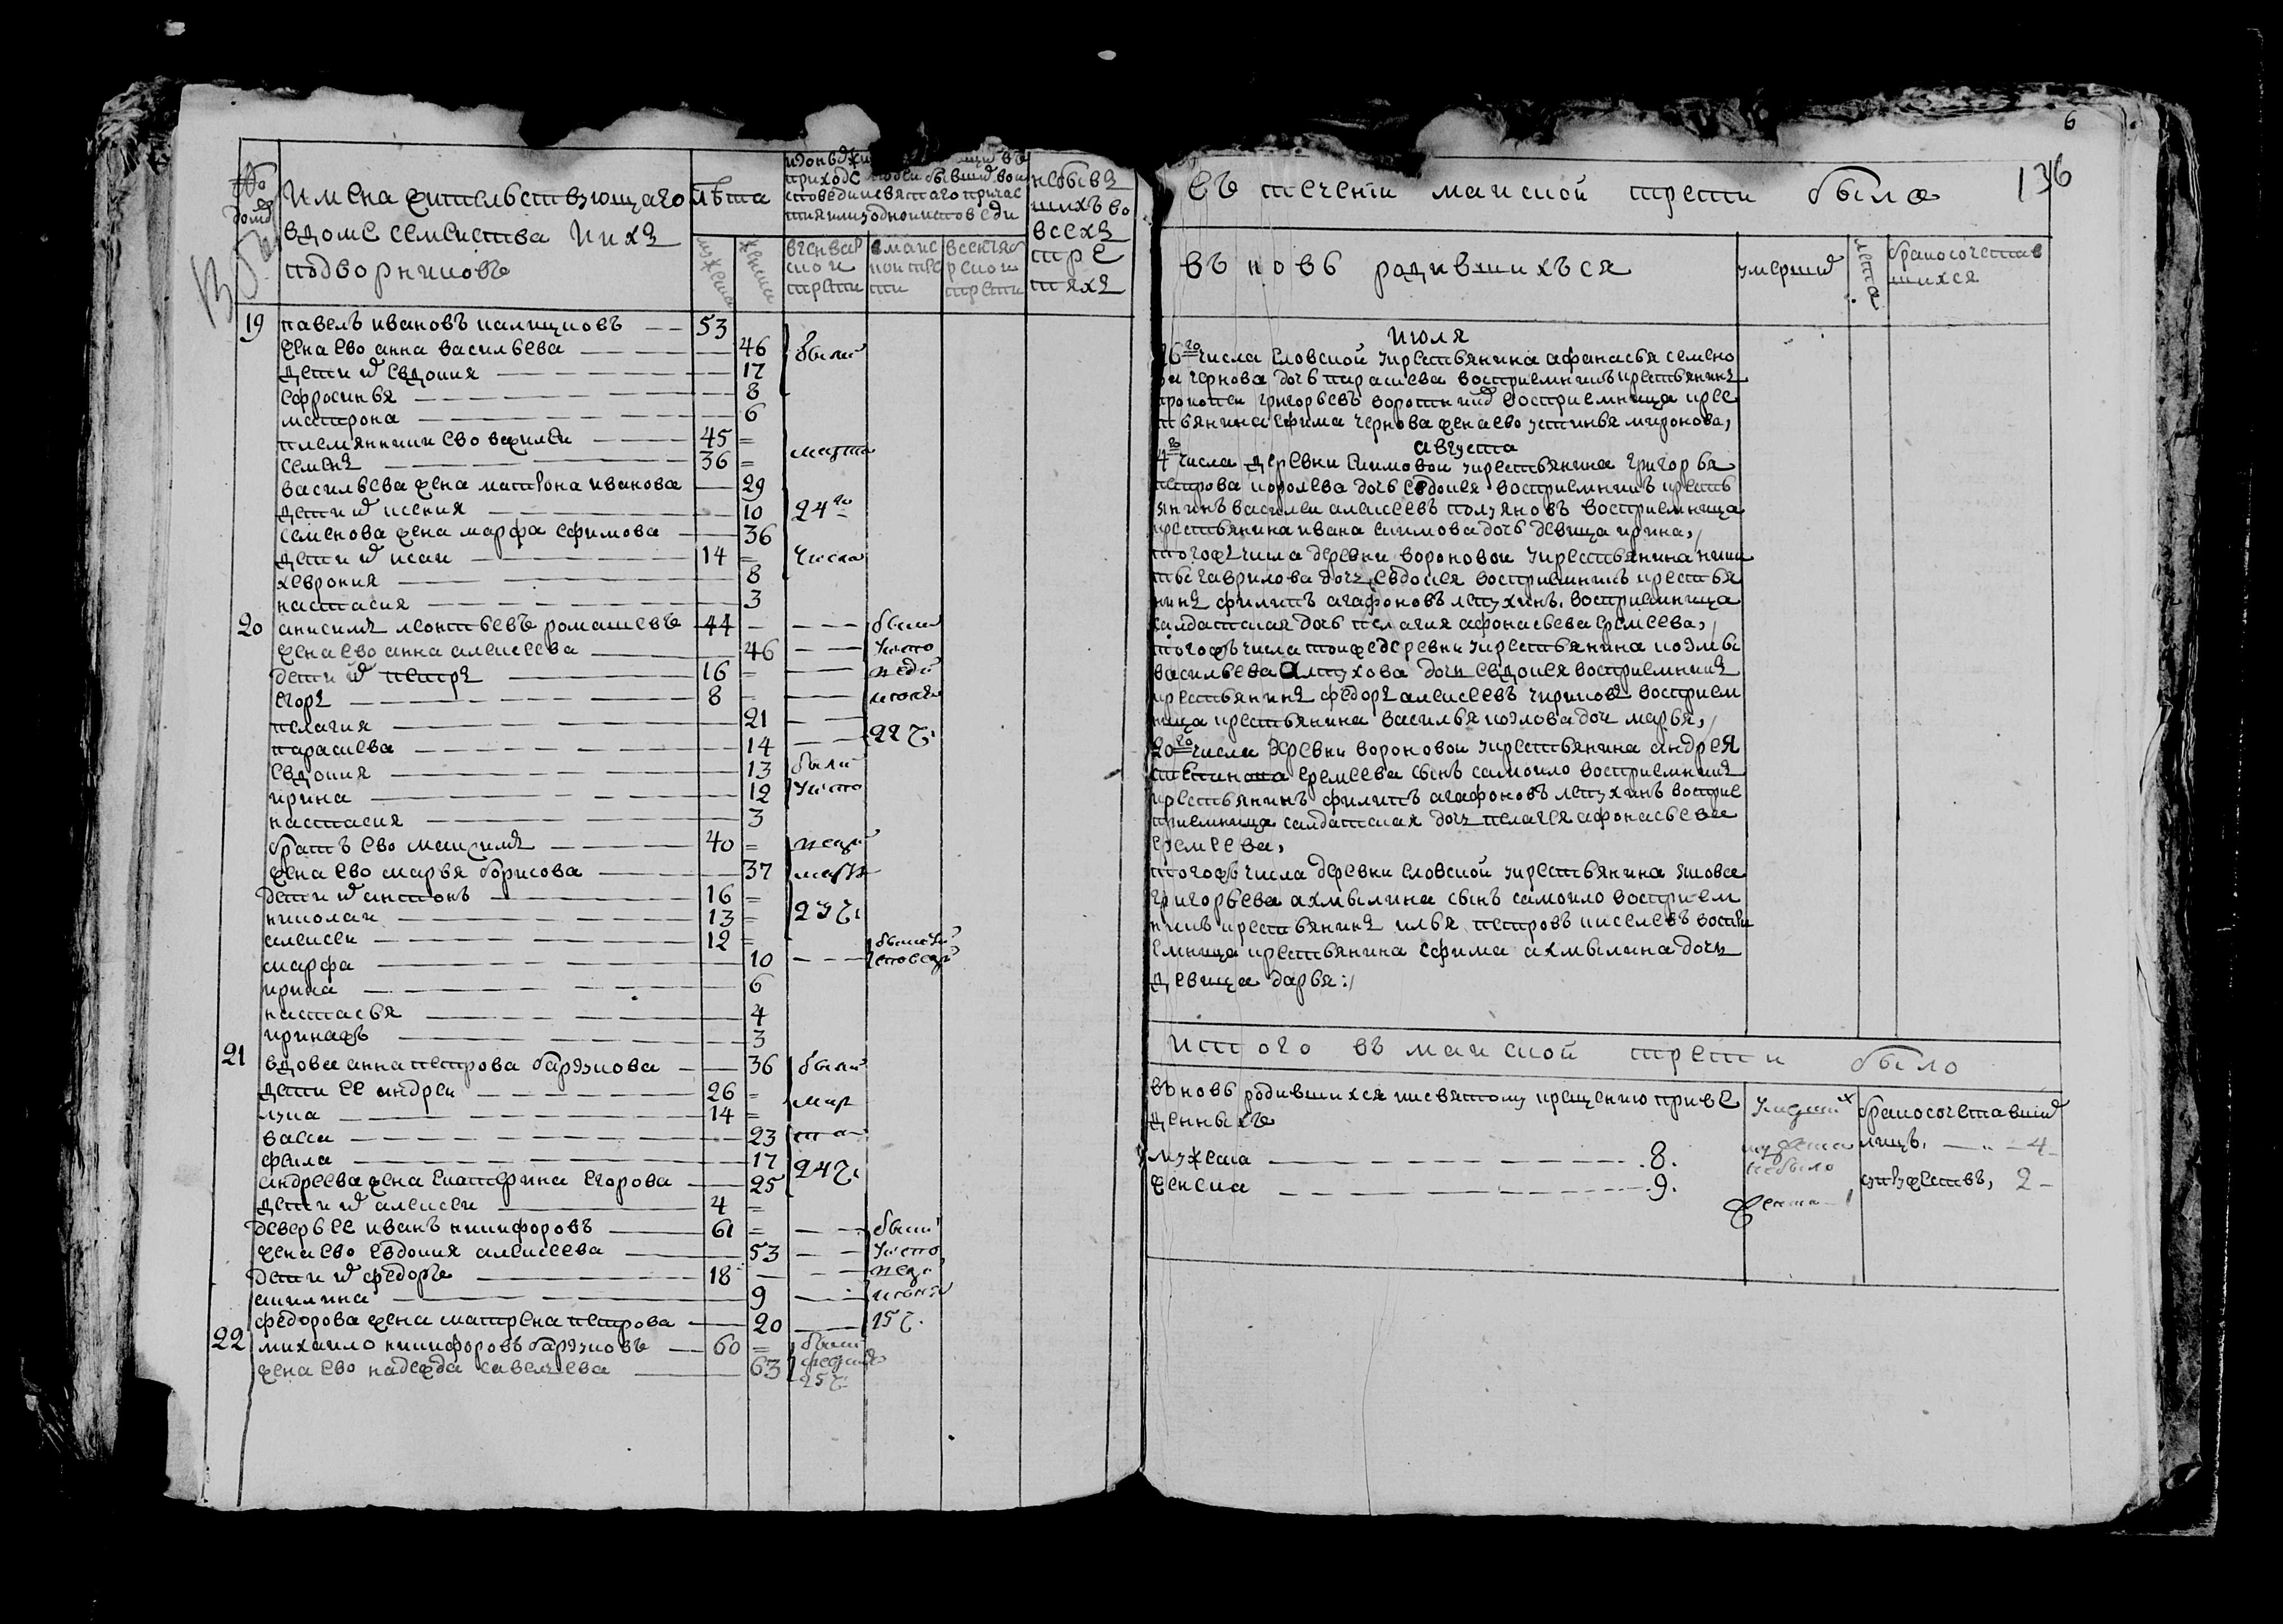 6
136
№ дома
имена жительствующаго
вдоме семеиства иихъ
подворниковъ
лѣта
мужеска
женска
приходе людеи бывших во ис
поведи исвятаго причас
тия илиуодноиисповеди
вгенвар
ской
трети
вмаис
кои тре
ти
всентяб
рской
трети
небывъ
шихъ во
всехъ
тре
тяхъ
19 павелъ ивановъ калициовъ — 53
жена ево анна васильева — 46 были
дети их евдокия — 17
ефросинья — 8
матрона — 6
племянники ево василеи — 45 =
семенъ — 36 = марта
васильева жена матрона иванова — 29
дети их ксения — 10 24го
семенова жена марфа ефимова — 36
дети их исаи — 14 = числа
хеврония — 8
настасия — 3
20 анисимъ леонтьевъ ромашевъ — 44 были
жена ево анна алексеева — 46 уиспо
дети их петръ — 16 = веди
егоръ — 8 июня
пелагия — 21
параскева — 14 22 ч.
евдокия — 13 были
ирина — 12 уиспо
настасия — 3
братъ ево максимъ — 40 =
жена ево марья борисова — 37 марта
дети их антонъ — 16 =
николаи — 13 = 23 ч.
алексеи — 12 =
марфа — 10
ирина — 6
настасья — 4
иринафъ — 3
21 вдова анна петрова барзукова — 36 были
дети ее андреи — 26 =
лука — 14 = мар
васса — 23 та
фекла — 17 24 ч.
андреева жена екатерина егорова — 25
дети их алексеи — 4 =
деверь ее иванъ никифоровъ — 61 = были
жена ево евдокия алексеева — 53 уиспо
дети их федоръ — 18 веди
акилина — 9 июня
федорова жена матрена петрова — 20 15 ч.
22 михаило никифоровъ барзуковъ — 60 = были
жена ево надежда савельева — 63 25 ч.
въ течени маиской трети было
въ новь родившихъся
умерших
лета
бракосочетав
шихся
июля
26го числа еловской укрестьянина афанасья семено
ва чернова дочь параскева восприемникъ крестьянинъ
прокопеи григорьевъ воротник восприемница крес
тьянина ефима чернова жена ево устинья миронова,
августа
4го числа деревни климовои укрестьянина григорья
петрова королева дочь евдокея восприемникъ кресть
янинъ василеи алексеевъ полуяновъ восприемница
крестьянина ивана климова дочь девица ирина,
тогожъ числа деревни вороновои укрестьянина ники
ты гаврилова дочь евдокея восприемникъ крестья
нинъ филипъ агафоновъ лепухинъ, восприемница
салдатская дочь пелагия афонасьева еремеева,
тогожъ числа тоижедеревни укрестьянина козмы
васильева алтухова дочь евдокея восприемникъ
крестьянинъ федоръ алексеевъ чириковъ восприем
ница крестьянина василья козлова дочь марья,
20го числа деревни вороновои укрестьянина андрея
степанова еремеева сынъ самоило восприемникъ
крестьянинъ филипъ агафоновъ лепухинъ восприе
приемница салдатская дочь пелагея афонасьева
еремеева,
тогожъ числа деревни еловской укрестьянина якова
григорьева ахмылина сынъ самоило восприем
никъ крестьянинъ илья петровъ киселевъ воспри
емница крестьянина ефима ахмылина дочь
девица дарья:
итого въ маиской трети было
въновь родившихся иксвятому крещению приве
денныхъ
мужеска — 8.
женска — 9.
мужеска
небыло
женска 1
бракосочетавших
лицъ, — 4
супружествъ, 2